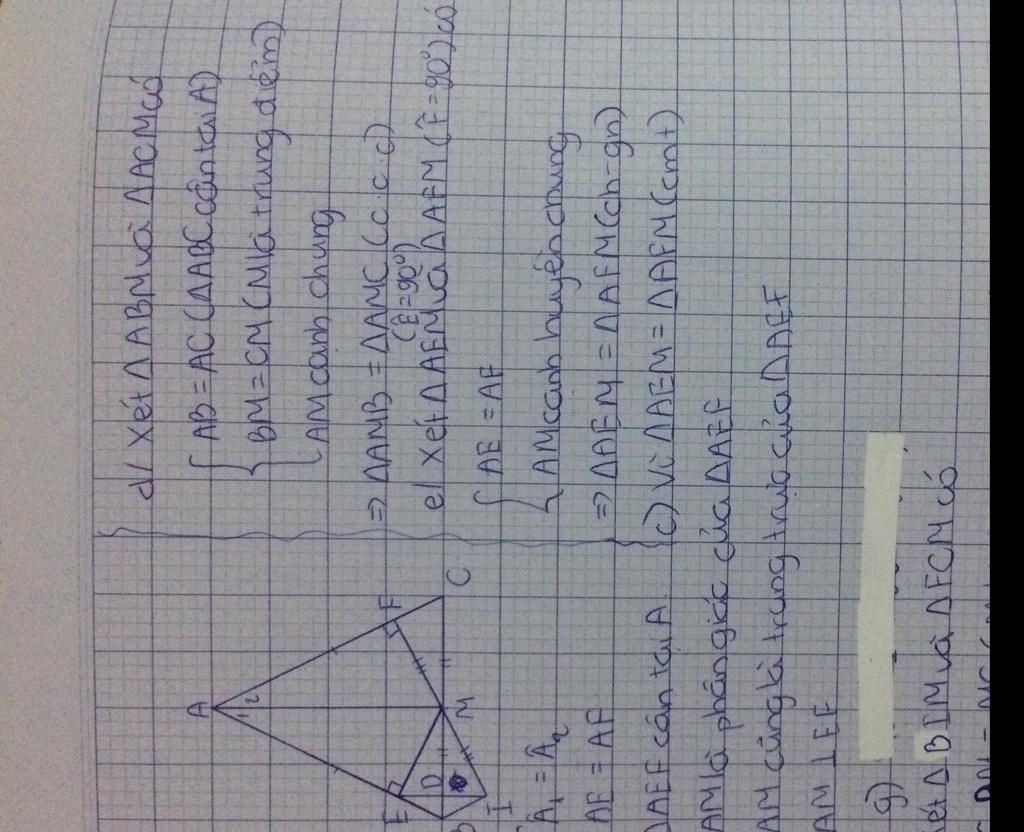 d/ Xét ΔABM và ΔACM có
AB = AC (ΔABC cân tại A)
BM = CM (M là trung điểm)
AM cạnh chung
=> ΔAMB = ΔAMC (c.c.c)
e/ Xét ΔAEM (Ê = 90°) và ΔAFM (F̂ = 90°) có
AE = AF
AM cạnh huyền chung
=> ΔAEM = ΔAFM (ch-gn)
c) Vì ΔAEM = ΔAFM (cmt)
A
1 2
E
F
D
M
C
I
Â1 = Â2
AE = AF
ΔAEF cân tại A
AM là phân giác của ΔAEF
AM cũng là trung trực của ΔAEF
AM ⊥ EF
g)
ét ΔBIM và ΔFCM có